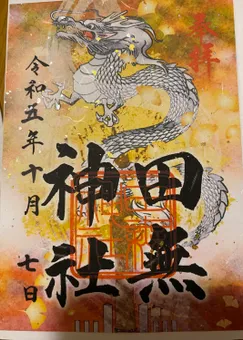 奉拝
田無
神社
令和五年十月七日